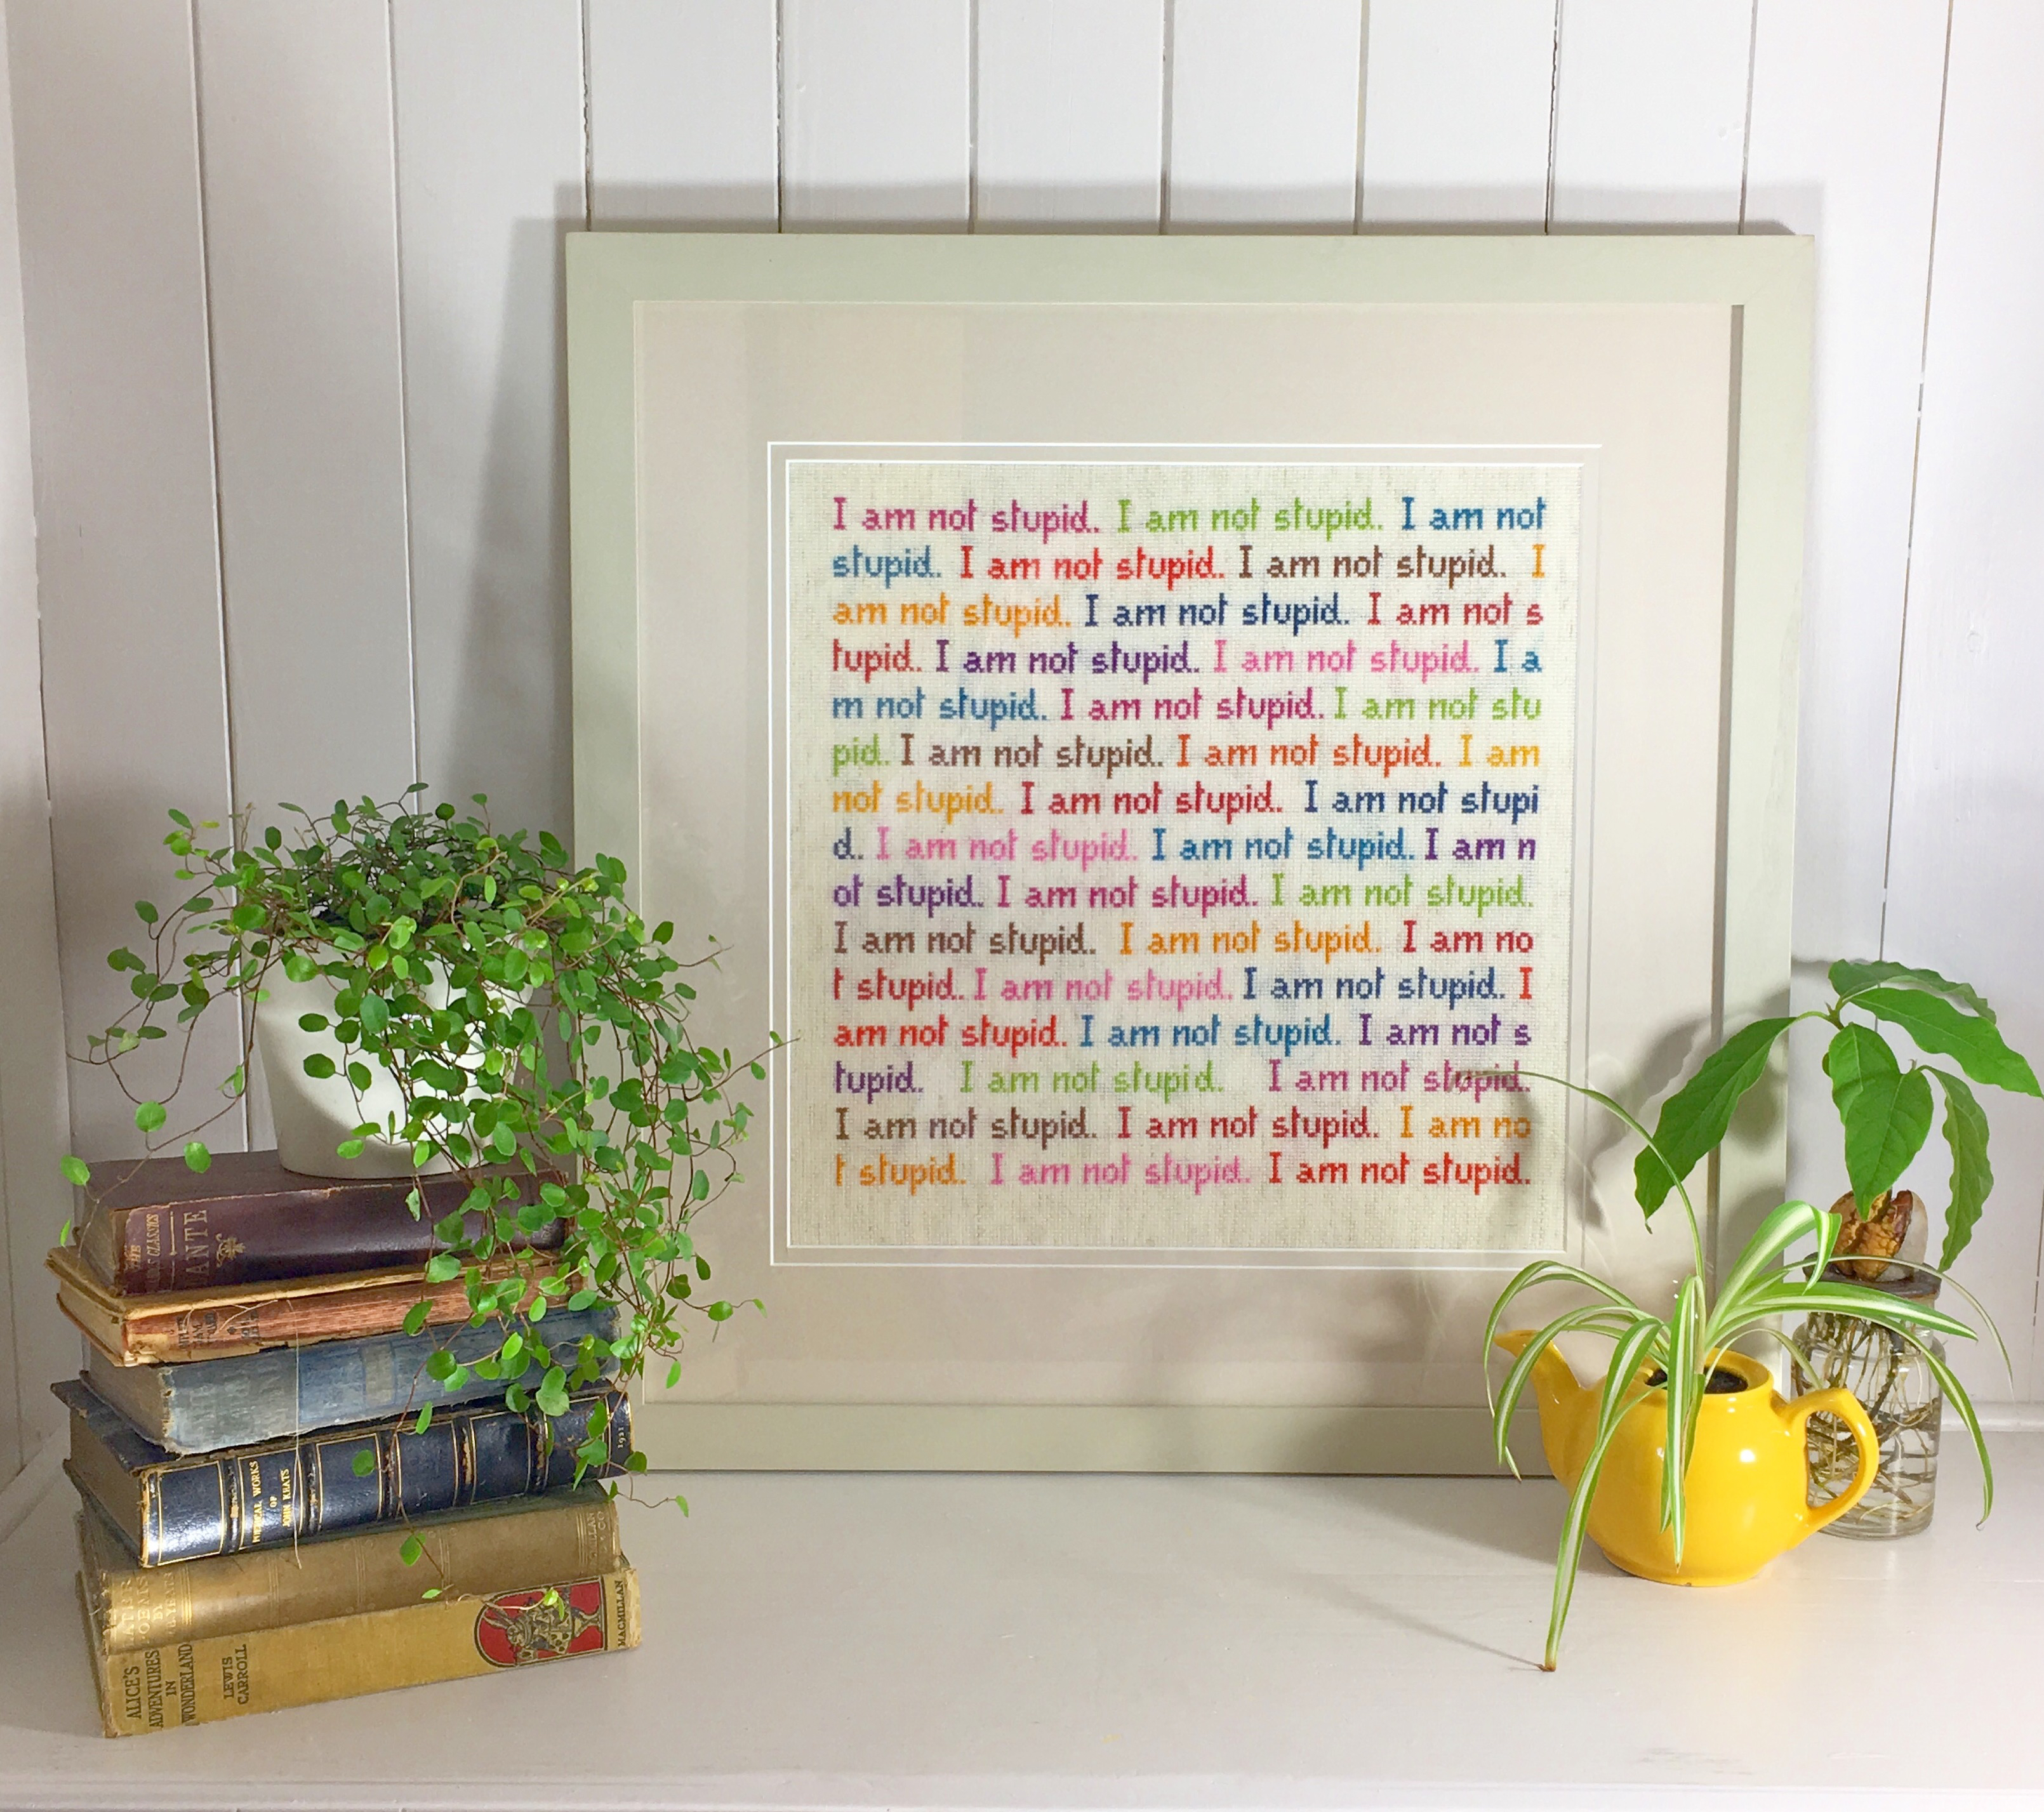 I am not stupid. I am not stupid. I am not
stupid. I am not stupid. I am not stupid. I
am not stupid. I am not stupid. I am not s
tupid. I am not stupid. I am not stupid. I a
m not stupid. I am not stupid. I am not stu
pid. I am not stupid. I am not stupid. I am
not stupid. I am not stupid. I am not stupi
d. I am not stupid. I am not stupid. I am n
ot stupid. I am not stupid. I am not stupid.
I am not stupid. I am not stupid. I am no
t stupid. I am not stupid. I am not stupid. I
am not stupid. I am not stupid. I am not s
tupid. I am not stupid. I am not stupid.
I am not stupid. I am not stupid. I am no
t stupid. I am not stupid. I am not stupid.
THE
CLASSICS
WORKS
OF
JOHN KEATS
1921
POEMS
BY
ALICE'S
ADVENTURES
IN
WONDERLAND
LEWIS
CARROLL
MACMILLAN